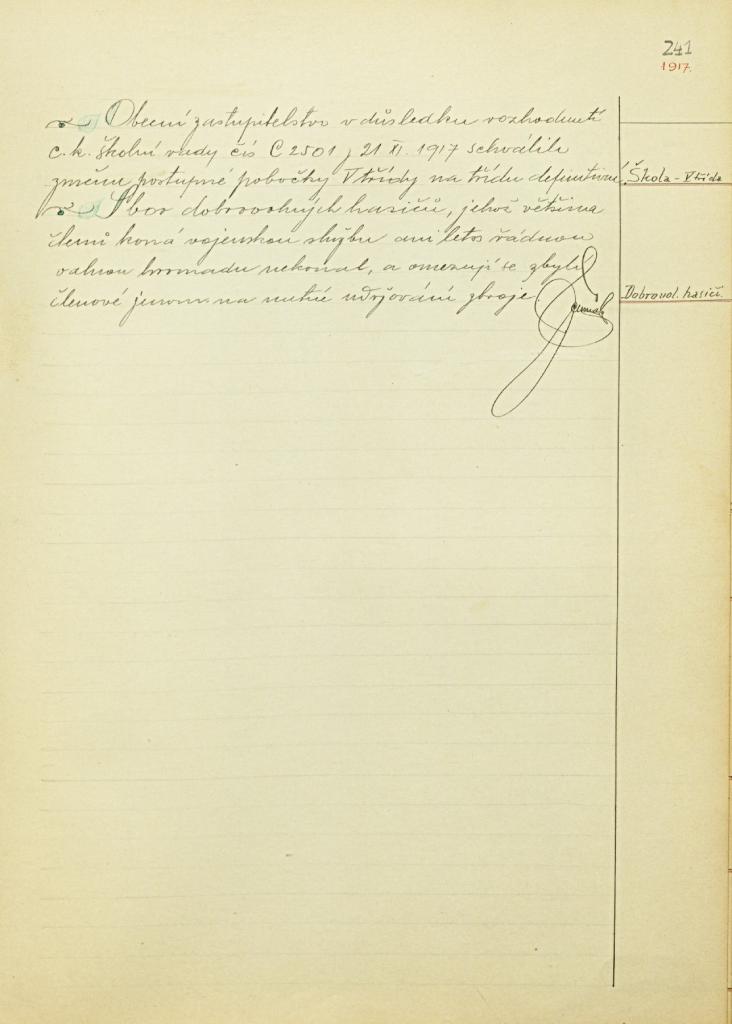 241
1917.
Obecní zastupitelstvo v důsledku rozhodnutí
c. k. školní rady čís C 2501 z 21 XI. 1917 schválilo
změnu postupné pobočky V třídy na třídu definitivní.
Škola - V třída
Sbor dobrovolných hasičů, jehož většina
členů koná vojenskou službu ani letos řádnou
valnou hromadu nekonal, a omezují se zbylí
členové jenom na nutné udržování zbroje
Dobrovol. hasiči.